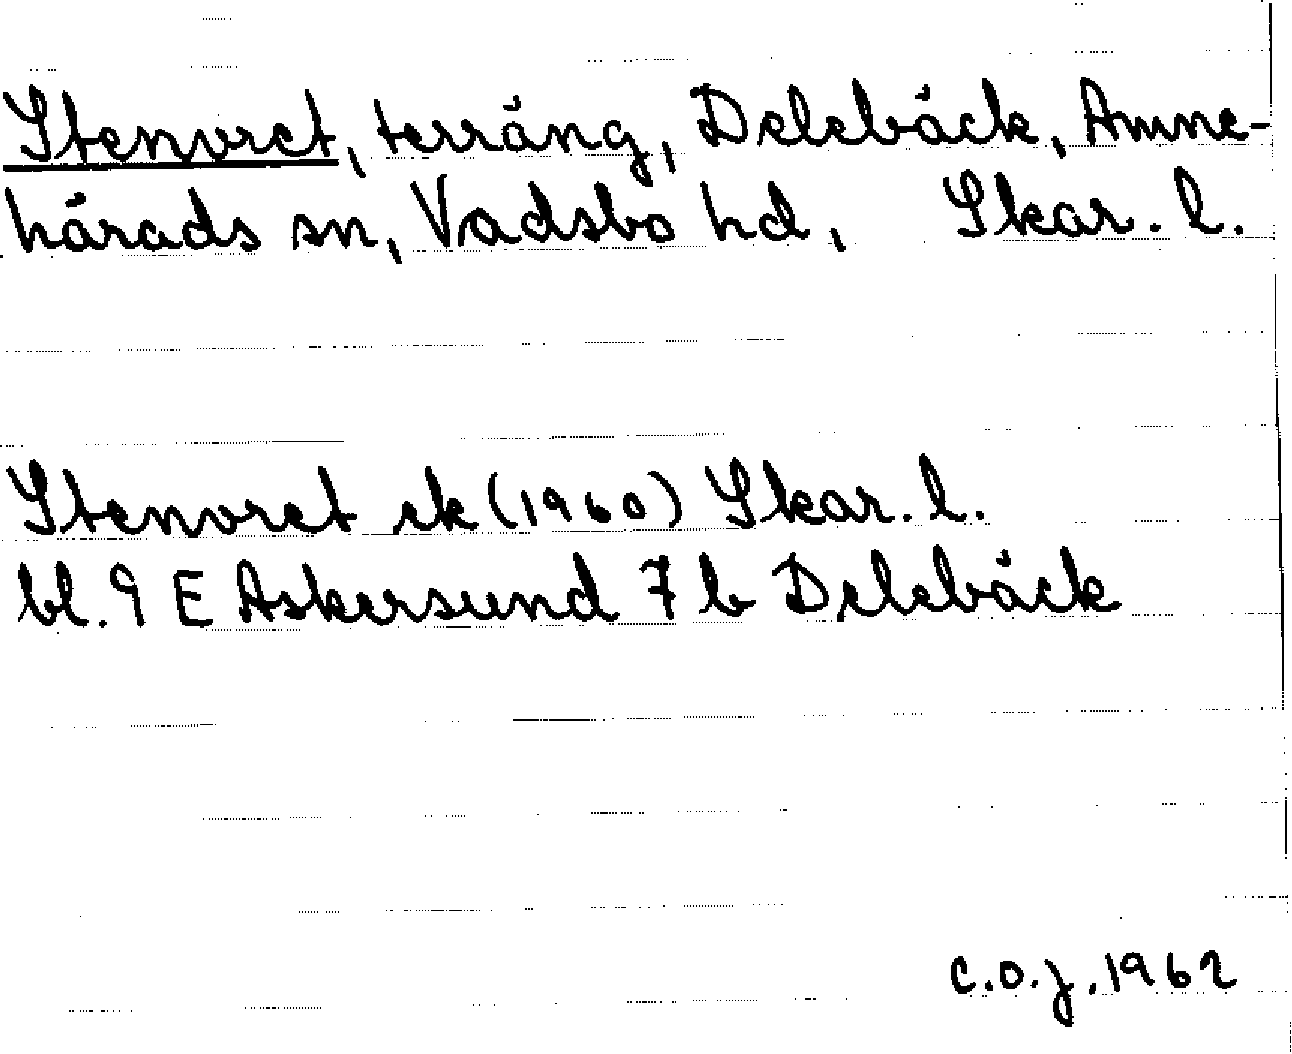 Stenvret, terräng, Delebäck, Amne-
härads sn, Vadsbo hd, Skar. l.
Stenvret ek (1960) Skar. l.
bl. 9 E Askersund 7 b Delebäck
C.O.J. 1962